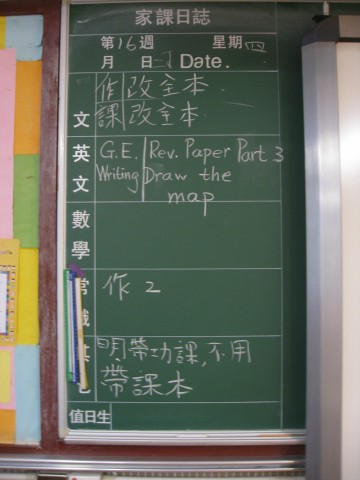 家課日誌
第16週 星期四
月 日 Date.
作 改全本
文 課 改全本
英文 G.E. Rev. Paper Part 3
Writing Draw the
map
數學
常識 作 2
其他 明帶功課,不用
帶課本
值日生